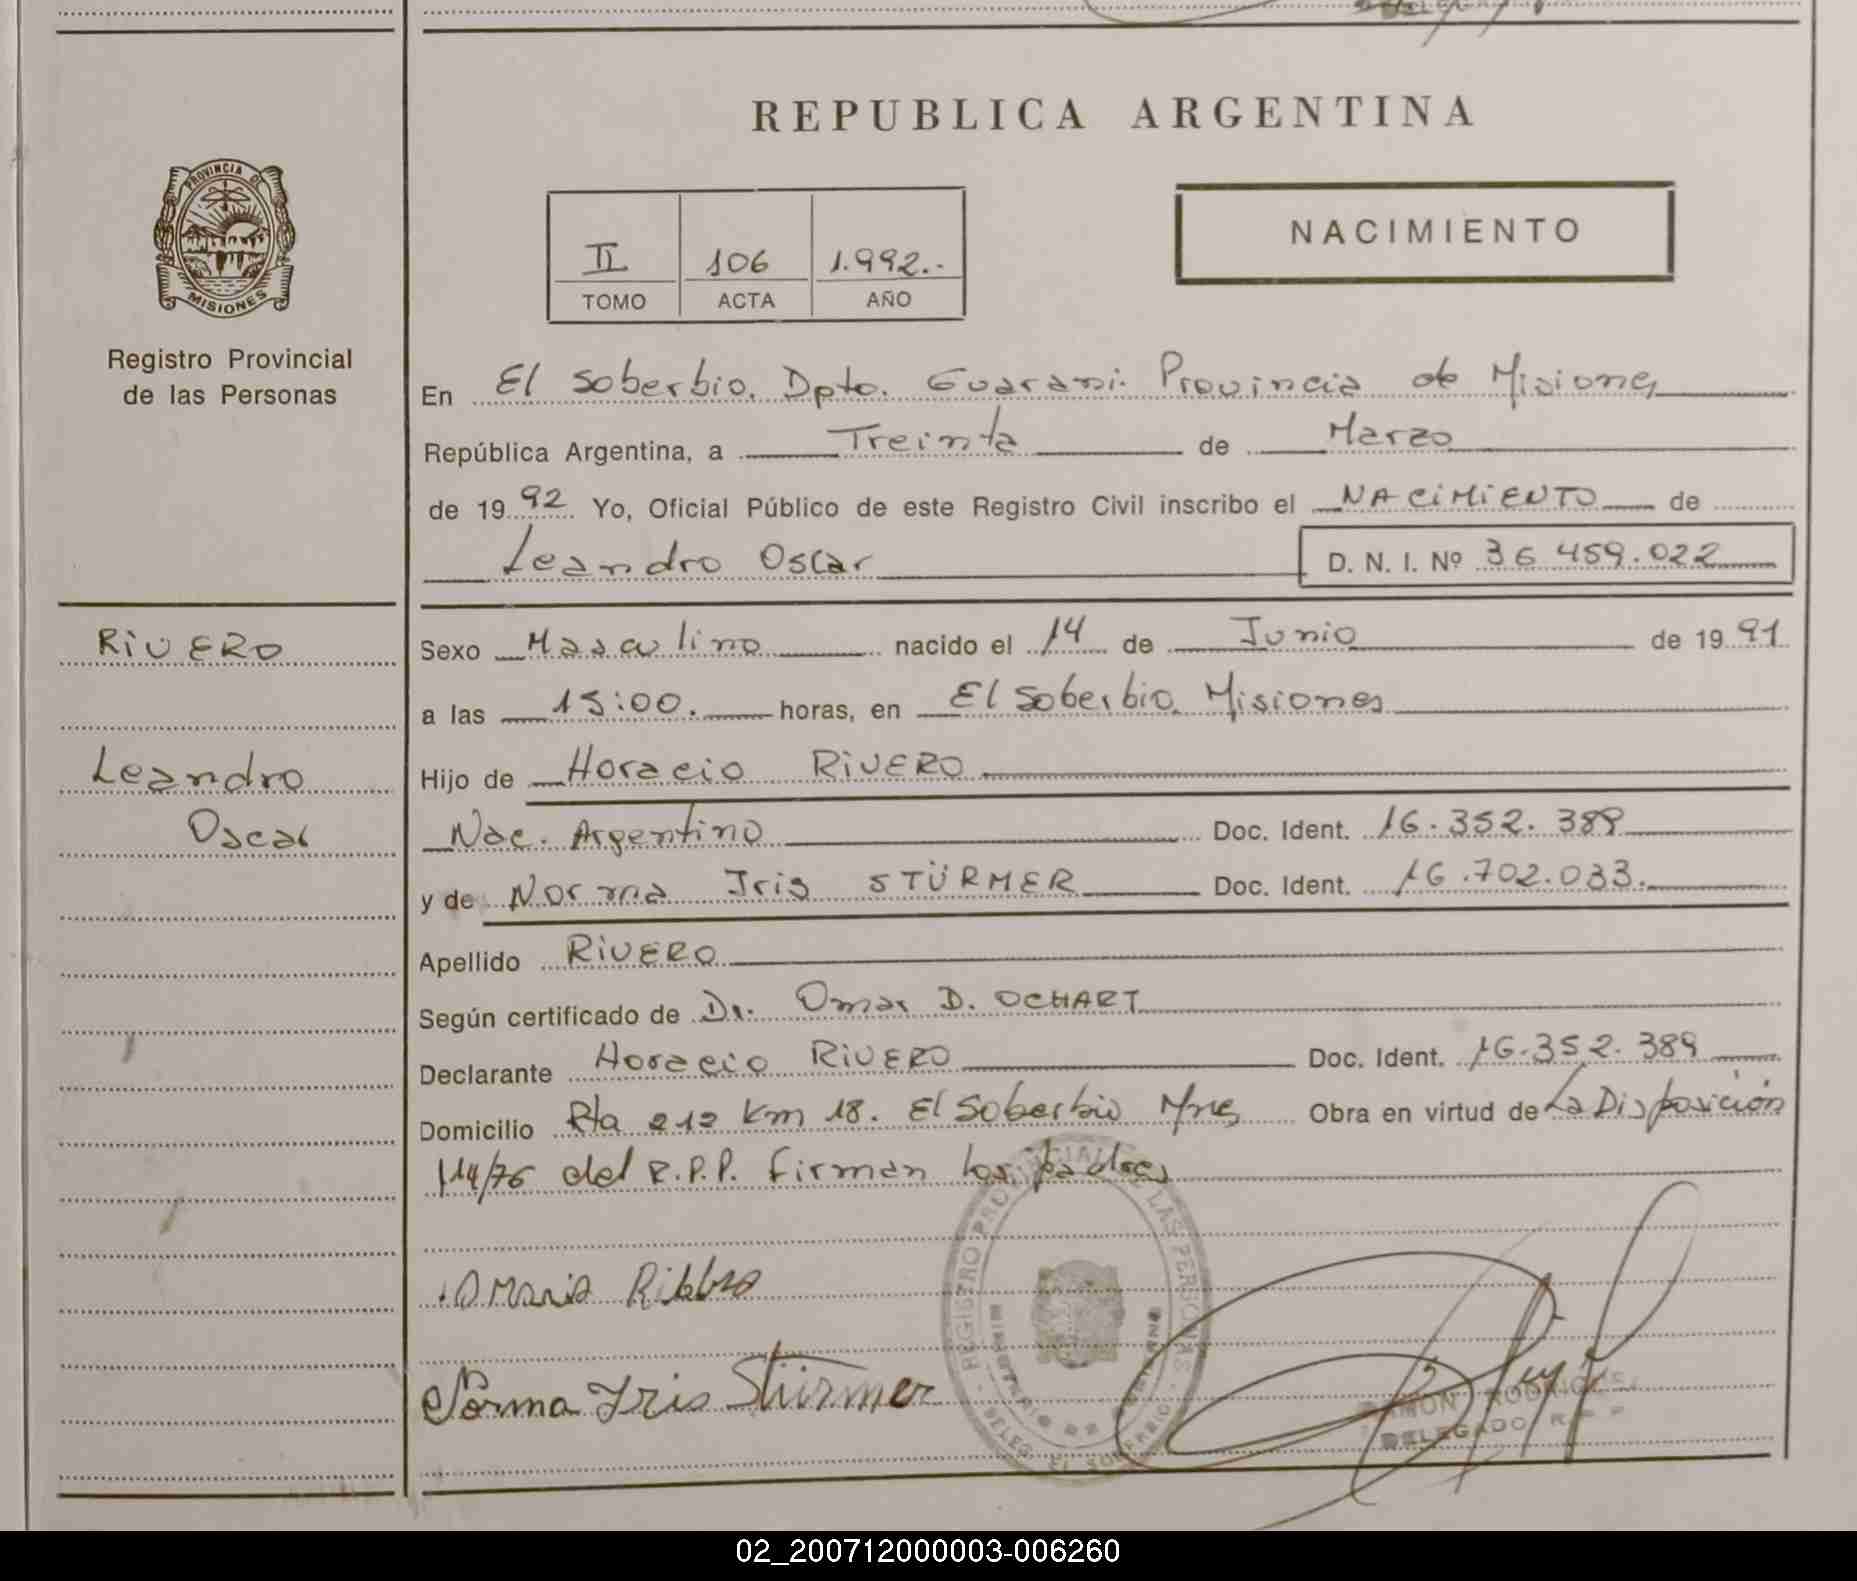 REPUBLICA ARGENTINA
PROVINCIA DE
MISIONES
Registro Provincial
de las Personas
II 106 1.992.-
TOMO ACTA AÑO
NACIMIENTO
En El Soberbio. Dpto. Guarani. Provincia de Misiones
República Argentina, a Treinta de Marzo
de 1992 Yo, Oficial Público de este Registro Civil inscribo el NACIMIENTO de
Leandro Oscar D. N. I. Nº 36 459.022
RIVERO
Leandro
Oscar
Sexo Masculino nacido el 14 de Junio de 1991
a las 15:00. horas, en El Soberbio, Misiones
Hijo de Horacio RIVERO
Nac. Argentino Doc. Ident. 16.352.389
y de Norma Iris STÜRMER Doc. Ident. 16.702.033.
Apellido RIVERO
Según certificado de Dr. Omar D. OCHART
Declarante Horacio RIVERO Doc. Ident. 16.352.389
Domicilio Rta 212 Km 18. El Soberbio Mnes Obra en virtud de La Disposición
114/76 del R.P.P. Firman los padres
Norma Iris Stürmer
REGISTRO PROVINCIAL DE LAS PERSONAS
DELEG. EL SOBERBIO
RAMON RODRIGUEZ
DELEGADO R.P.P.
02_200712000003-006260